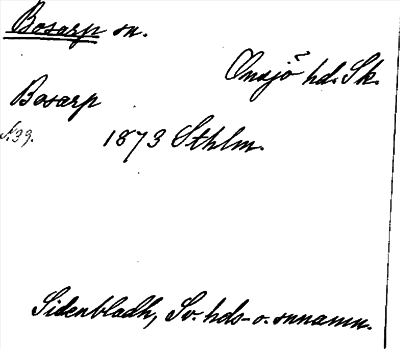 Bosarp sn.
Onsjö hd. Sk.
Bosarp
N:39.
1873 Sthlm.
Sidenbladh, Sv. hds- o. snnamn.